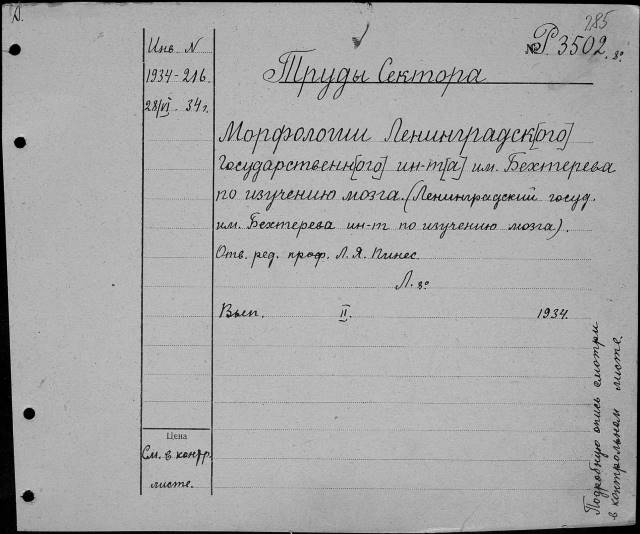 285
№ Р 3502. 8°
Инв. N
1934-216
28/VI 34 г.
Труды Сектора
Морфологии Ленинградск[ого]
государственн[ого] ин-т[а] им. Бехтерева
по изучению мозга. (Ленинградский госуд.
им. Бехтерева ин-т по изучению мозга).
Отв. ред. проф. Л. Я. Пинес.
Л. 8°
Вып. II. 1934.
Цена
См. в контр.
листе.
Подробную опись смотри
в контрольном листе.